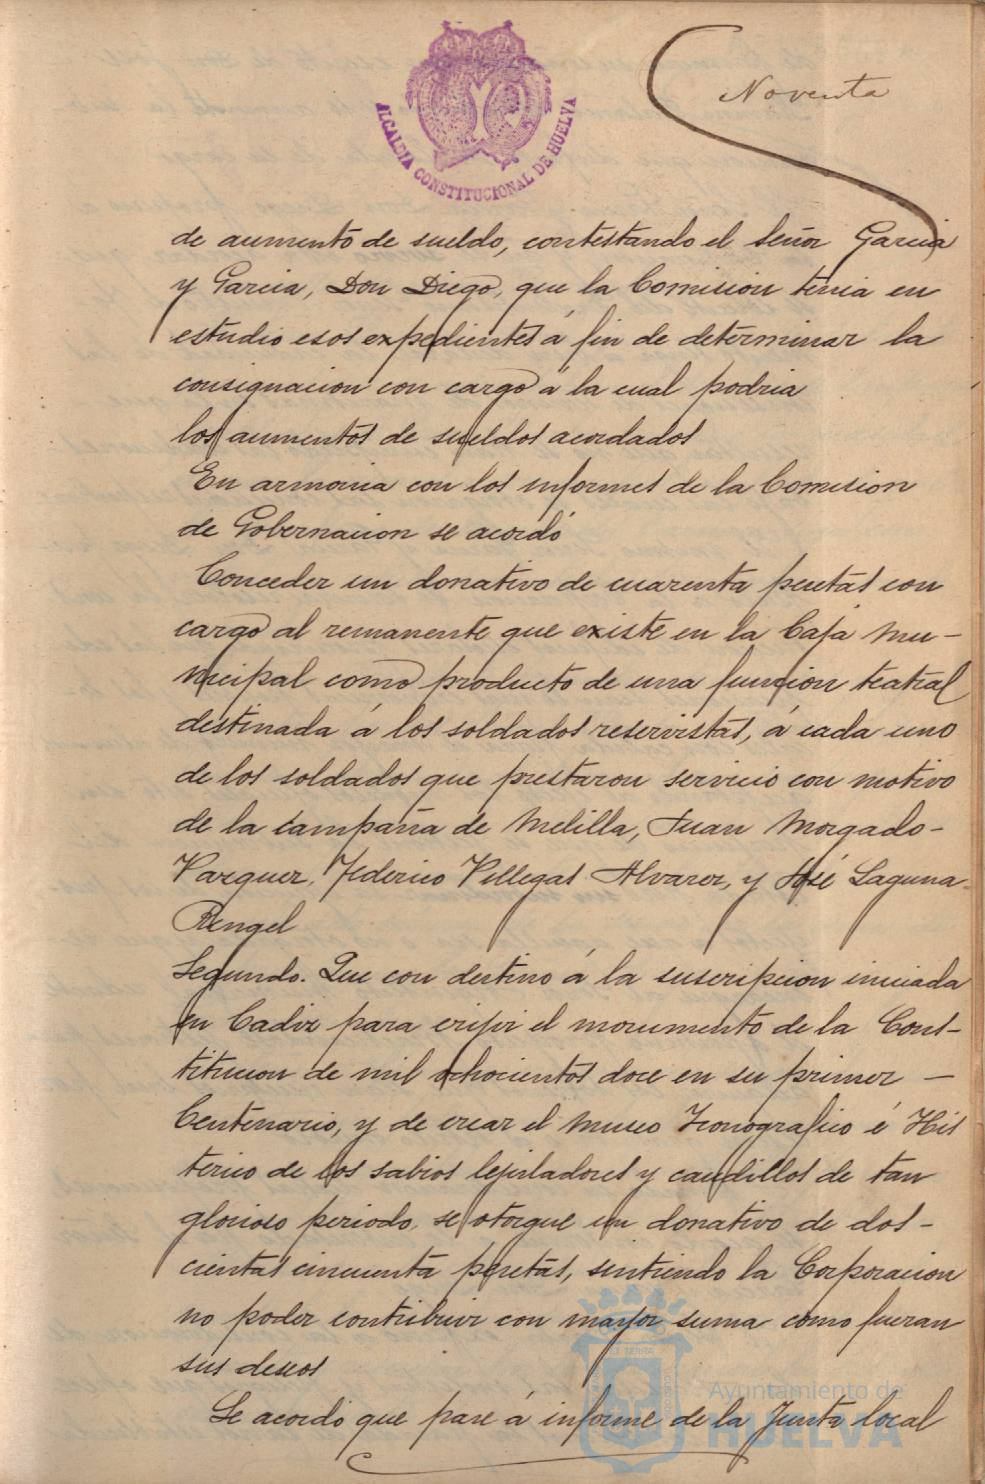 Noventa
ALCALDIA CONSTITUCIONAL DE HUELVA
de aumento de sueldo, contestando el Señor Garcia
y Garcia, Don Diego, que la Comision tenia en
estudio esos expedientes á fin de determinar la
consignacion con cargo á la cual podria
los aumentos de sueldos acordados
En armonia con los informes de la Comision
de Gobernacion se acordó
Conceder un donativo de cuarenta pesetas con
cargo al remanente que existe en la Caja Mu-
nicipal como producto de una funcion teatral
destinada á los soldados reservistas, á cada uno
de los soldados que prestaron servicio con motivo
de la campaña de Melilla, Juan Morgado-
Vazquez, Federico Villegas Alvarez, y José Laguna-
Rengel
Segundo. Que con destino á la suscripcion iniciada
en Cadiz para erijir el monumento de la Cons-
titucion de mil ochocientos doce en su primer -
Centenario, y de crear el Museo Iconografico é His
torico de los sabios lejisladores y caudillos de tan
glorioso periodo, se otorgue un donativo de dos-
cientas cincuenta pesetas, sintiendo la Corporacion
no poder contribuir con mayor suma como fueran
sus deseos
Se acordó que pase á informe de la Junta local
Ayuntamiento de
HUELVA